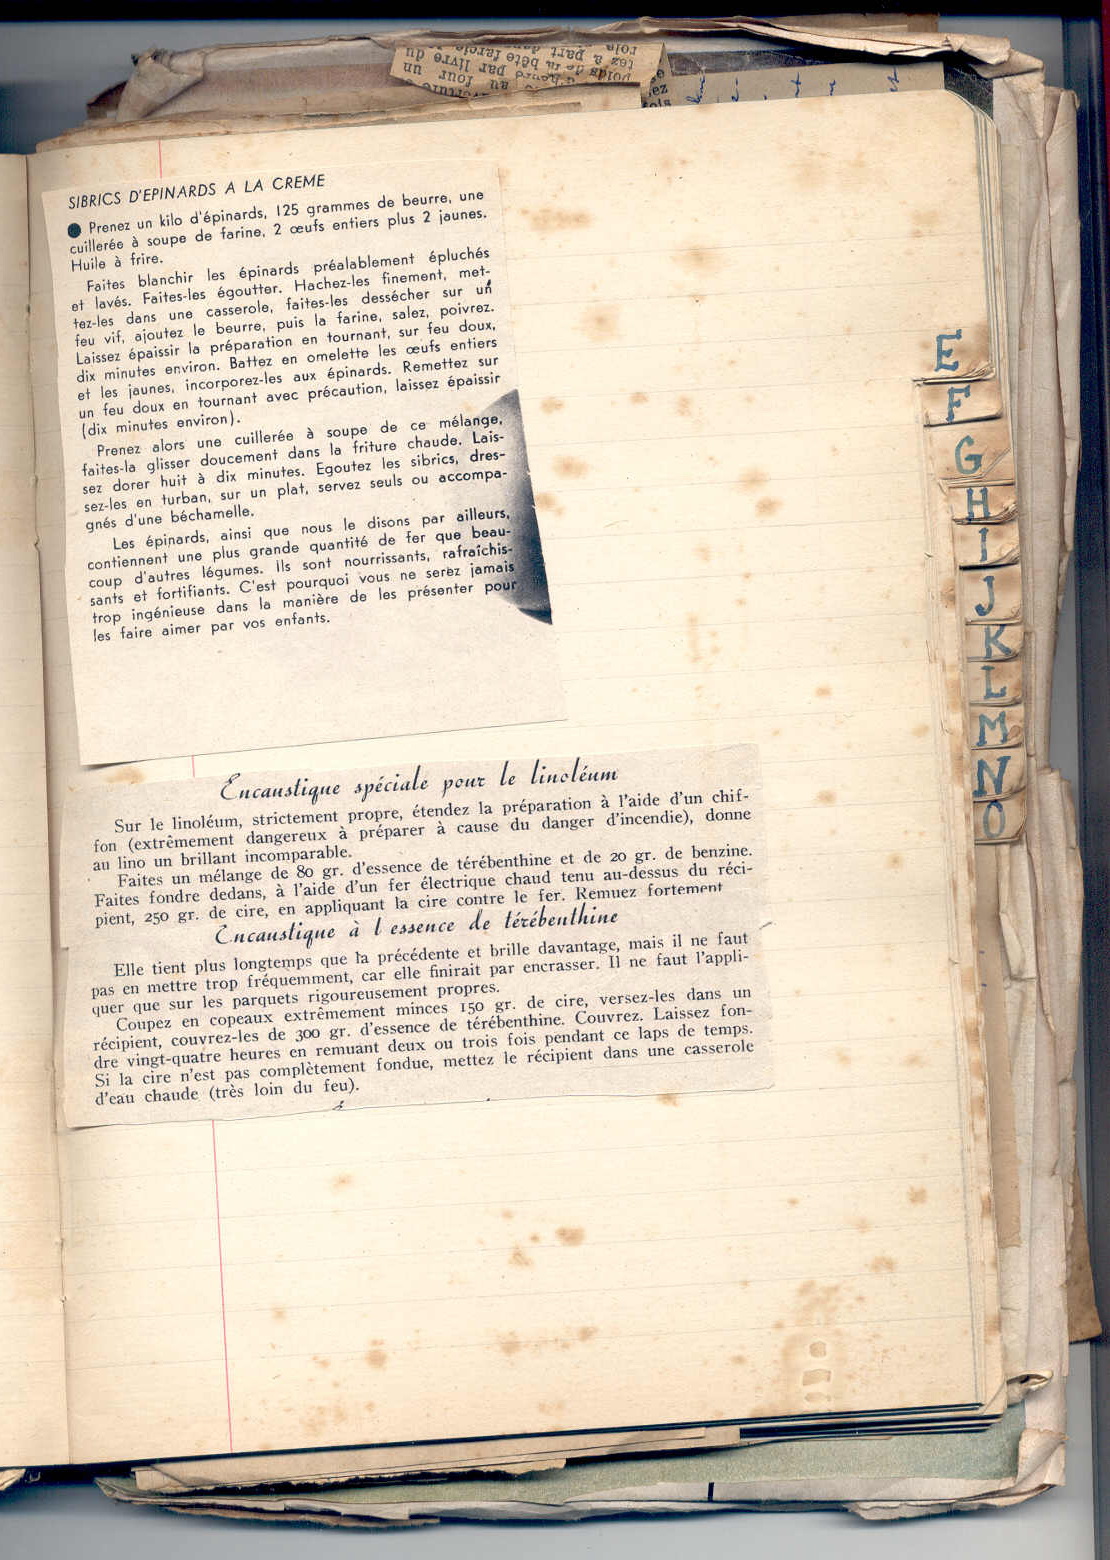 rola
tez à part dans
poids de la bête farcie
d'heure par livre du
au four un
SIBRICS D'EPINARDS A LA CREME
● Prenez un kilo d'épinards, 125 grammes de beurre, une
cuillerée à soupe de farine, 2 œufs entiers plus 2 jaunes.
Huile à frire.
Faites blanchir les épinards préalablement épluchés
et lavés. Faites-les égoutter. Hachez-les finement, met-
tez-les dans une casserole, faites-les dessécher sur un
feu vif, ajoutez le beurre, puis la farine, salez, poivrez.
Laissez épaissir la préparation en tournant, sur feu doux,
dix minutes environ. Battez en omelette les œufs entiers
et les jaunes, incorporez-les aux épinards. Remettez sur
un feu doux en tournant avec précaution, laissez épaissir
(dix minutes environ).
Prenez alors une cuillerée à soupe de ce mélange,
faites-la glisser doucement dans la friture chaude. Lais-
sez dorer huit à dix minutes. Egoutez les sibrics, dres-
sez-les en turban, sur un plat, servez seuls ou accompa-
gnés d'une béchamelle.
Les épinards, ainsi que nous le disons par ailleurs,
contiennent une plus grande quantité de fer que beau-
coup d'autres légumes. Ils sont nourrissants, rafraîchis-
sants et fortifiants. C'est pourquoi vous ne serez jamais
trop ingénieuse dans la manière de les présenter pour
les faire aimer par vos enfants.
Encaustique spéciale pour le linoléum
Sur le linoléum, strictement propre, étendez la préparation à l'aide d'un chif-
fon (extrêmement dangereux à préparer à cause du danger d'incendie), donne
au lino un brillant incomparable.
Faites un mélange de 80 gr. d'essence de térébenthine et de 20 gr. de benzine.
Faites fondre dedans, à l'aide d'un fer électrique chaud tenu au-dessus du réci-
pient, 250 gr. de cire, en appliquant la cire contre le fer. Remuez fortement
Encaustique à l essence de térébenthine
Elle tient plus longtemps que la précédente et brille davantage, mais il ne faut
pas en mettre trop fréquemment, car elle finirait par encrasser. Il ne faut l'appli-
quer que sur les parquets rigoureusement propres.
Coupez en copeaux extrêmement minces 150 gr. de cire, versez-les dans un
récipient, couvrez-les de 300 gr. d'essence de térébenthine. Couvrez. Laissez fon-
dre vingt-quatre heures en remuant deux ou trois fois pendant ce laps de temps.
Si la cire n'est pas complètement fondue, mettez le récipient dans une casserole
d'eau chaude (très loin du feu).
E
F
G
H
I
J
K
L
M
N
O